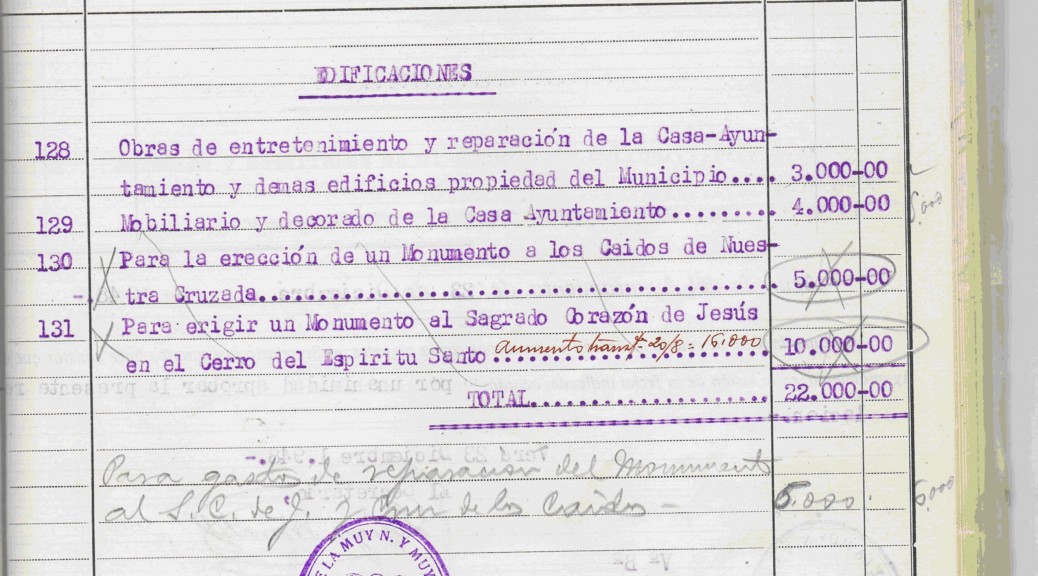 EDIFICACIONES
128 Obras de entretenimiento y reparación de la Casa-Ayun-
tamiento y demas edificios propiedad del Municipio.... 3.000-00
129 Mobiliario y decorado de la Casa Ayuntamiento......... 4.000-00 5.000
130 Para la erección de un Monumento a los Caidos de Nues-
tra Cruzada........................................... 5.000-00
131 Para erigir un Monumento al Sagrado Corazón de Jesús
en el Cerro del Espiritu Santo aumento transf. 20/8 = 16.000 10.000-00
TOTAL....................... 22.000-00
Para gastos de reparacion del Monumento
al S. C. de J. y Cruz de los Caidos - 5.000 5.000
DE LA MUY N. Y MUY